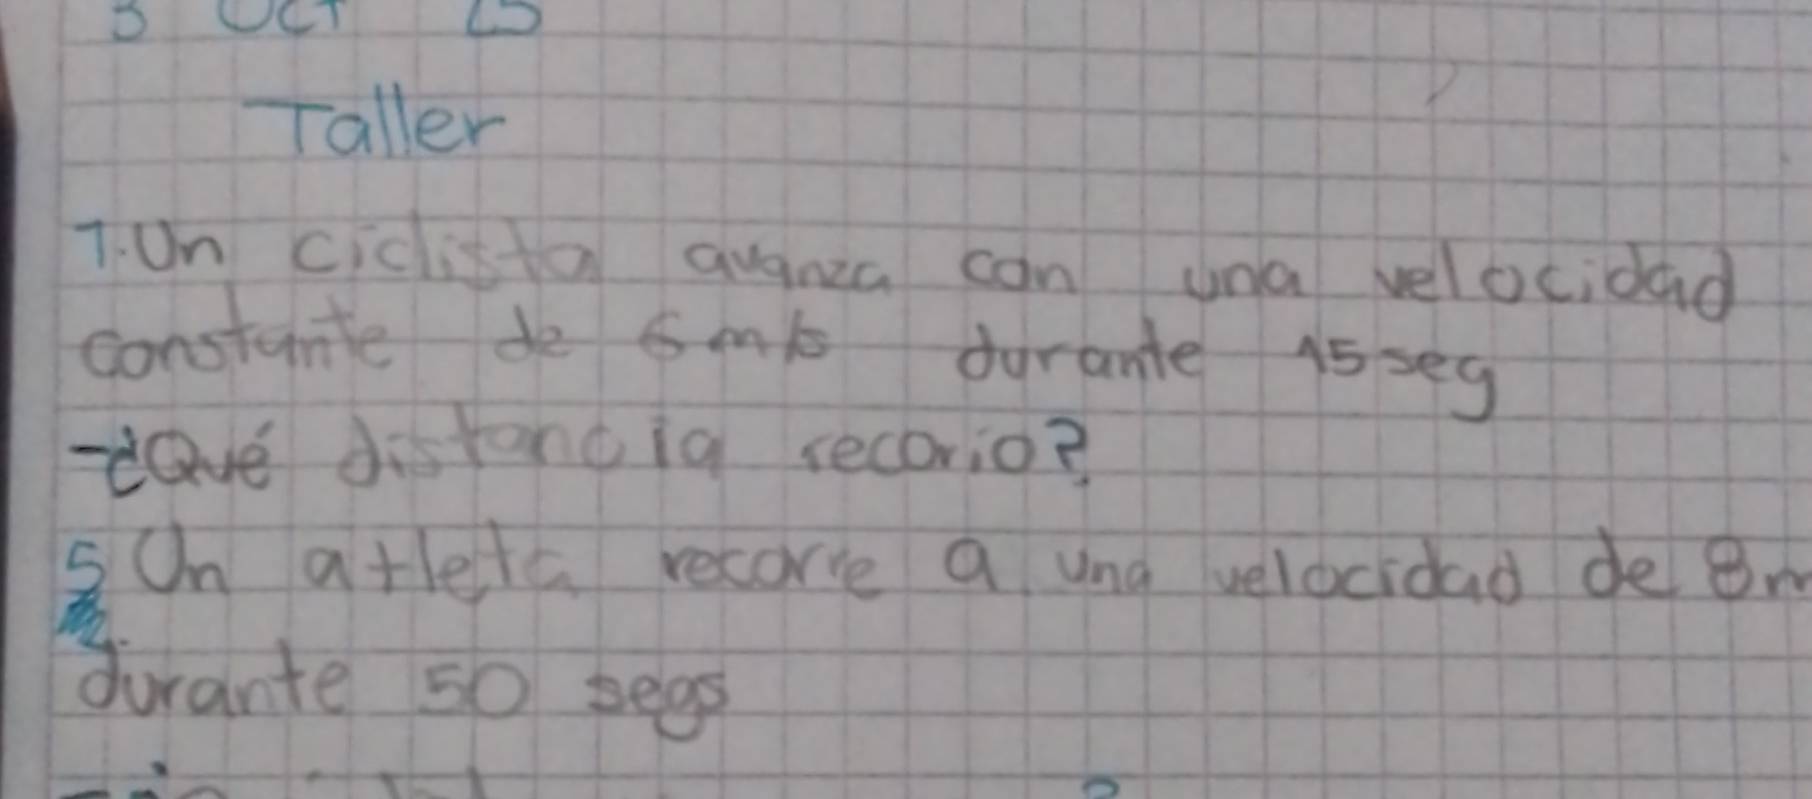 3 Oct 25
Taller
1. Un ciclista avanza con una velocidad
constante de 6 m/s durante 15 seg
-¿Qué distancia recorio?
5 Un atleta recorre a una velocidad de 8m
durante 50 segs